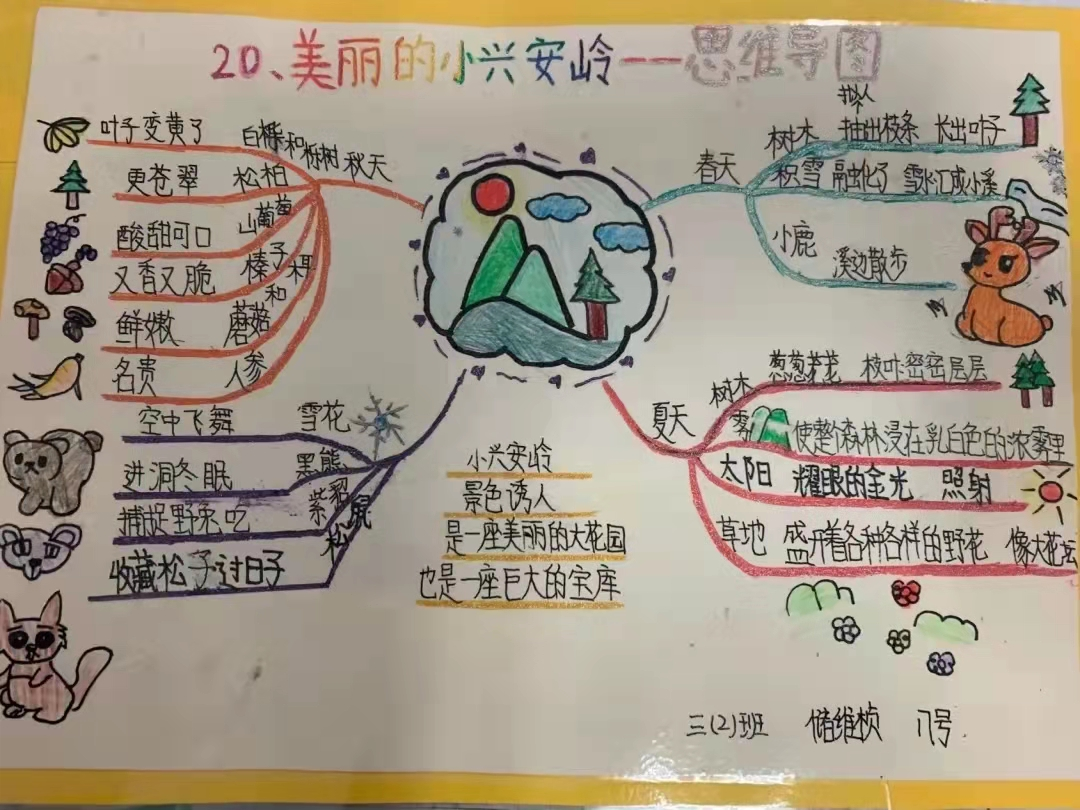 20、美丽的小兴安岭——思维导图
春天
拟人
树木 抽出枝条 长出叶子
积雪 融化了 雪水汇成小溪
小鹿 溪边散步
夏天
树木 葱葱茏茏 枝叶密密层层
雾 使整个森林浸在乳白色的浓雾里
太阳 耀眼的金光 照射
草地 盛开着各种各样的野花 像大花坛
秋天
叶子变黄了 白桦和栎树
更苍翠 松柏
酸甜可口 山葡萄
又香又脆 榛子
鲜嫩 蘑菇和
名贵 人参
空中飞舞 雪花
进洞冬眠 黑熊
捕捉野兔吃 紫貂
收藏松子过日子 松鼠
小兴安岭
景色诱人
是一座美丽的大花园
也是一座巨大的宝库
三(2)班 储维桢 八号